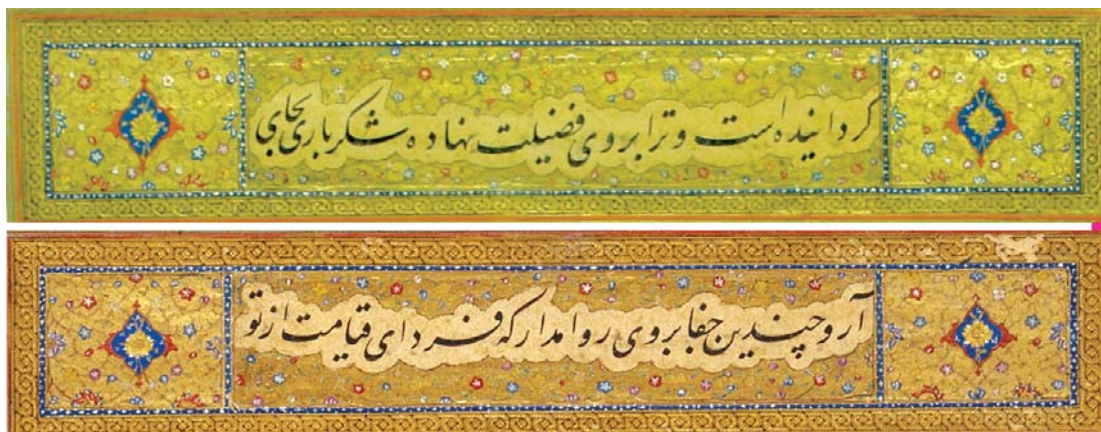 گردانیده است و ترا بر وی فضیلت نهاده شکر باری بجای
آر و چندین جفا بر وی روا مدار که فردای قیامت از تو